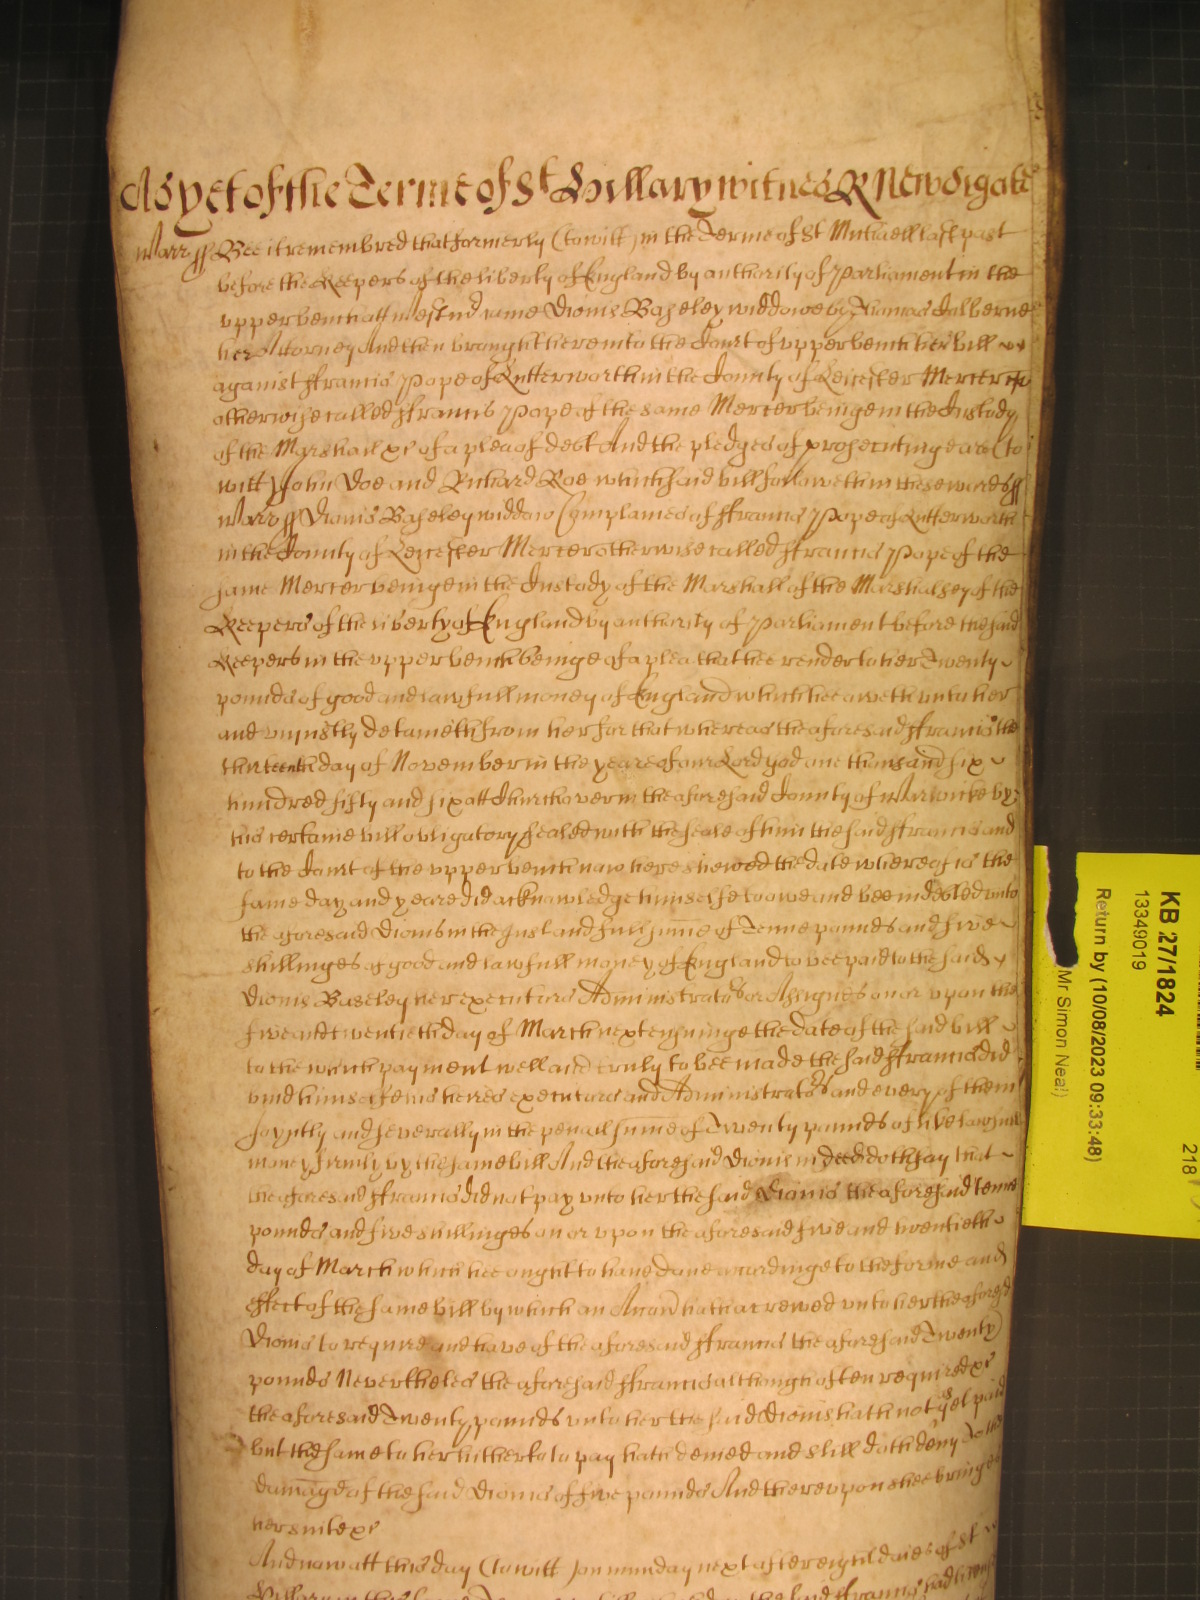 As yet of the Terme of St Hillary witnes R Newdigate
Warr ss Bee it remembred that formerly (to witt) in the Terme of St Michaell last past
before the Keepers of the liberty of England by authority of Parliament in the
upper bench att Westm came Dionis Baseley widdowe by Thomas
her Attorney And then brought here into the Court of upper bench her bill
against ffrancis Pope of Lutterworth in the County of Leicester Mercer
otherwise called ffrancis Pope of the same Mercer beinge in the Custody
of the Marshall &c of a plea of debt And the pledges of prosecuting are (to
witt) John Doe and Richard Roe which said bill followeth in these words ss
Warr ss Dionis Baseley widdow Complaines of ffrancis Pope of Lutterworth
in the County of Leicester Mercer otherwise called ffrancis Pope of the
same Mercer beinge in the Custody of the Marshall of the Marshalsey of the
Keepers of the liberty of England by authority of Parliament before the said
Keepers in the upper bench beinge of a plea that hee render to her Twenty
pounds of good and lawfull money of England which hee oweth unto her
and unjustly detaineth from her for that whereas the aforesaid ffrancis the
thirteenth day of November in the yeare of our Lord god one thousand six
hundred fifty and six att Churchover in the aforesaid County of Warwicke by
his certaine bill obligatory sealed with the seale of him the said ffrancis and
to the Court of the upper bench now here shewed the date whereof is the
same day and yeare did acknowledge himselfe to owe and bee indebted unto
the aforesaid Dionis in the just and full summe of Tenne pounds and five
shillinges of good and lawfull money of England to bee paid to the said
Dionis Baseley her executors Administrators or Assignes on or upon the
five and twentieth day of March next ensuinge the date of the said bill
to the which payment well and truly to bee made the said ffrancis did
bind himselfe his heires executors and Administrators and every of them
joyntly and severally in the penall summe of Twenty pounds of like lawfull
money firmly by the same bill And the aforesaid Dionis in deed doth say that
the aforesaid ffrancis did not pay unto her the said Dionis the aforesaid tenne
pounds and five shillinges on or upon the aforesaid five and twentieth
day of March which hee ought to have done accordinge to the forme and
effect of the same bill by which an Accon hath accrewed unto her the aforesd
Dionis to require and have of the aforesaid ffrancis the aforesaid Twenty
pounds Neverthelesse the aforesaid ffrancis although often required &c
the aforesaid Twenty pounds unto her the said Dionis hath not as yet paid
but the same to her hitherto to pay hath denied and still doth deny To the
damage of the said Dionis of five pounds And thereupon shee bringes
her suite &c
And now att this day (to witt) on munday next after eight daies of St
Hillary in this same Terme the said ffrancis had
KB 27/1824
13349019
Return by (10/08/2023 09:33:48)
Mr Simon Neal)
218